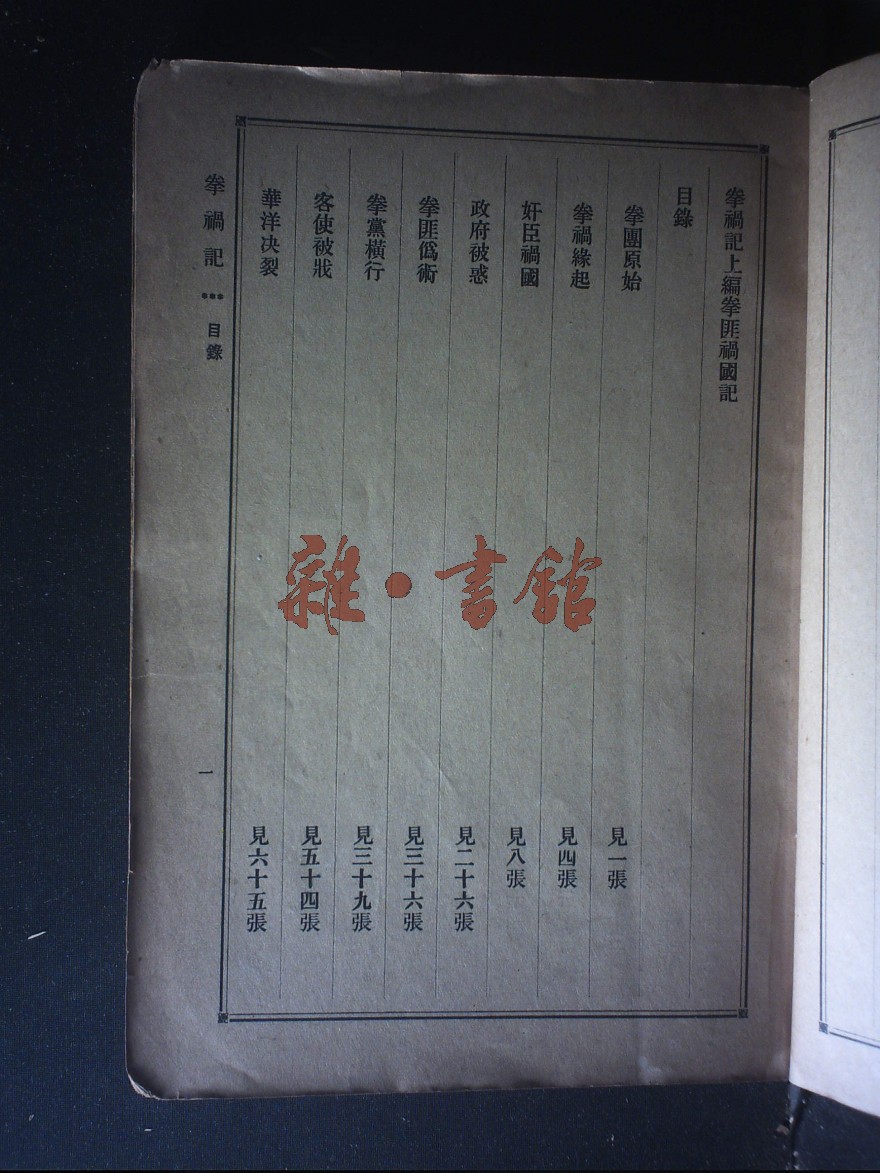 拳禍記上編拳匪禍國記
目錄
拳團原始 見一張
拳禍緣起 見四張
奸臣禍國 見八張
政府被惑 見二十六張
拳匪僞術 見三十六張
拳黨橫行 見三十九張
客使被戕 見五十四張
華洋决裂 見六十五張
拳禍記 *** 目錄 一
雜·書館